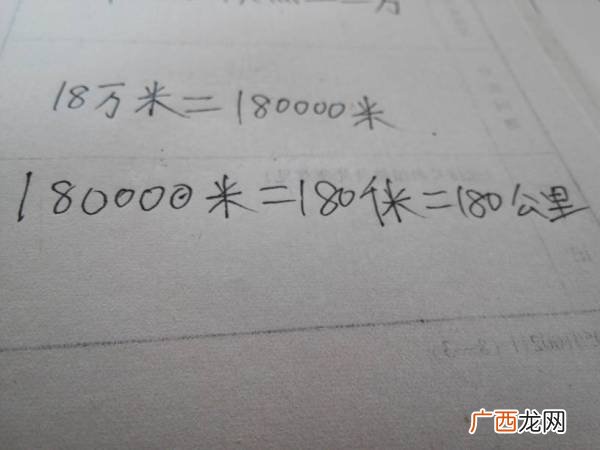 18万米=180000米
180000米=180千米=180公里
广西龙网